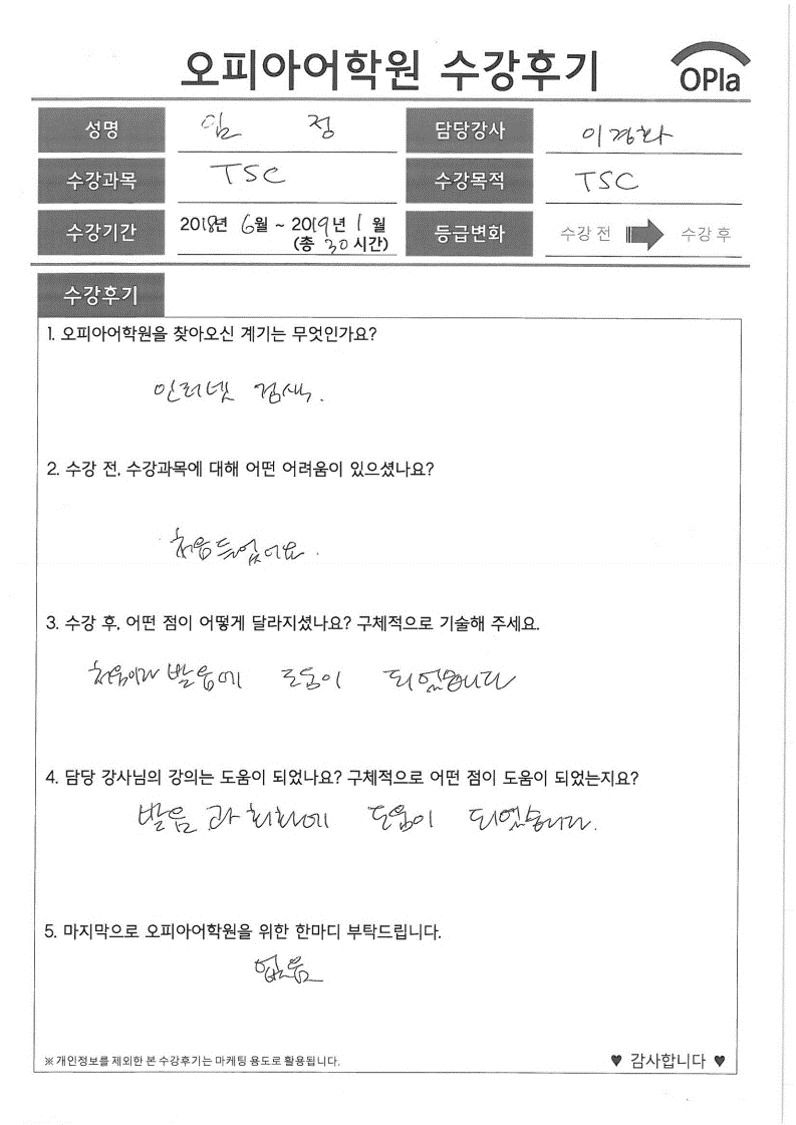 오피아어학원 수강후기
OPIa
성명 임 정 담당강사 이경화
수강과목 TSC 수강목적 TSC
수강기간 2018년 6월 ~ 2019년 1월
(총 30시간)
등급변화 수강 전 수강 후
수강후기
1. 오피아어학원을 찾아오신 계기는 무엇인가요?
인터넷 검색.
2. 수강 전, 수강과목에 대해 어떤 어려움이 있으셨나요?
처음들었어요.
3. 수강 후, 어떤 점이 어떻게 달라지셨나요? 구체적으로 기술해 주세요.
처음이라 발음에 도움이 되었습니다
4. 담당 강사님의 강의는 도움이 되었나요? 구체적으로 어떤 점이 도움이 되었는지요?
발음과 회화에 도움이 되었습니다.
5. 마지막으로 오피아어학원을 위한 한마디 부탁드립니다.
없음
※ 개인정보를 제외한 본 수강후기는 마케팅 용도로 활용됩니다.
♥ 감사합니다 ♥